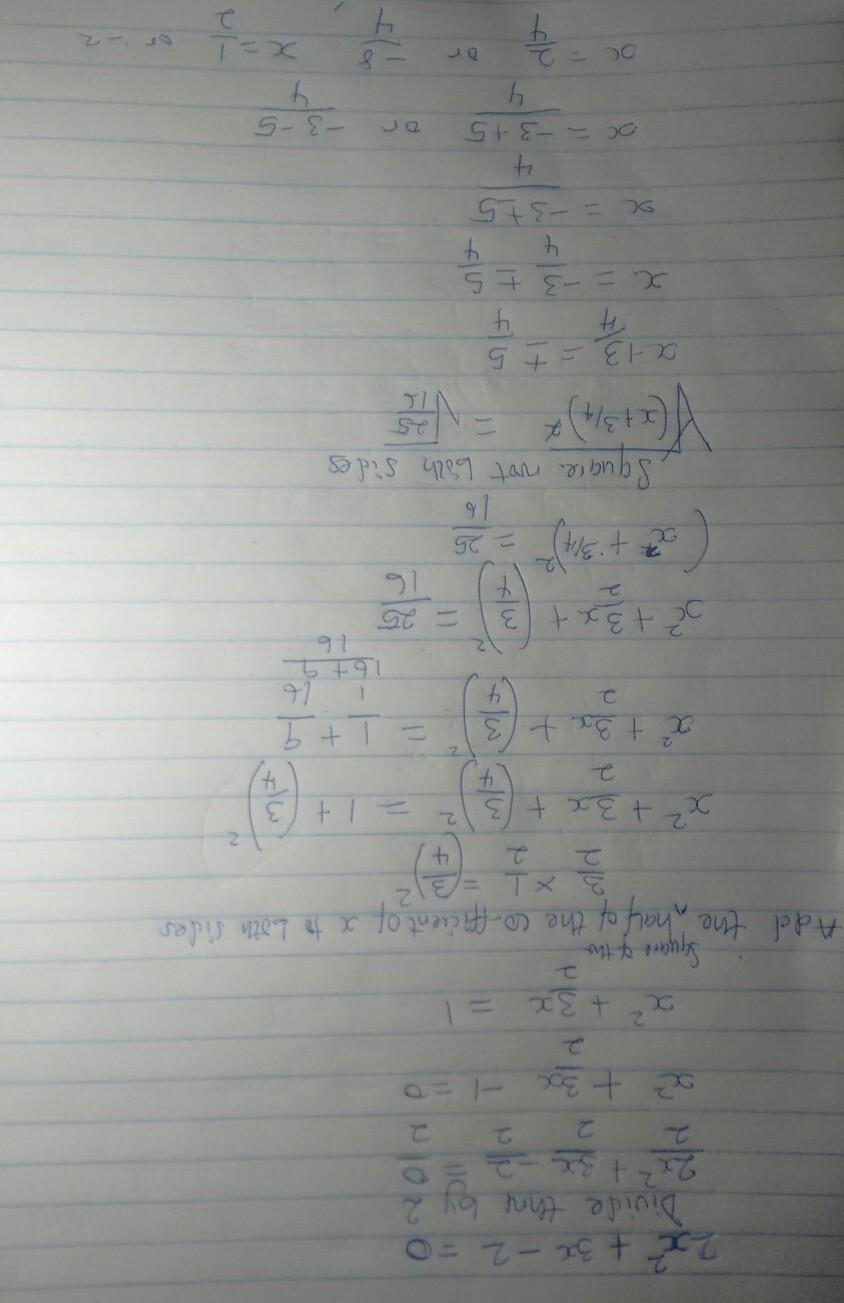 2x² + 3x - 2 = 0
Divide thru by 2
2x²/2 + 3x/2 - 2/2 = 0/2
x² + 3x/2 - 1 = 0
x² + 3x/2 = 1
Add the square of the half of the co-efficient of x to both sides
3/2 × 1/2 = (3/4)²
x² + 3x/2 + (3/4)² = 1 + (3/4)²
x² + 3x/2 + (3/4)² = 1/1 + 9/16
16+9/16
x² + 3x/2 + (3/4)² = 25/16
(x + 3/4)² = 25/16
Square root both sides
√(x+3/4)² = √25/16
x+3/4 = ± 5/4
x = -3/4 ± 5/4
x = -3±5/4
x = -3+5/4 or -3-5/4
x = 2/4 or -8/4 x = 1/2 or -2